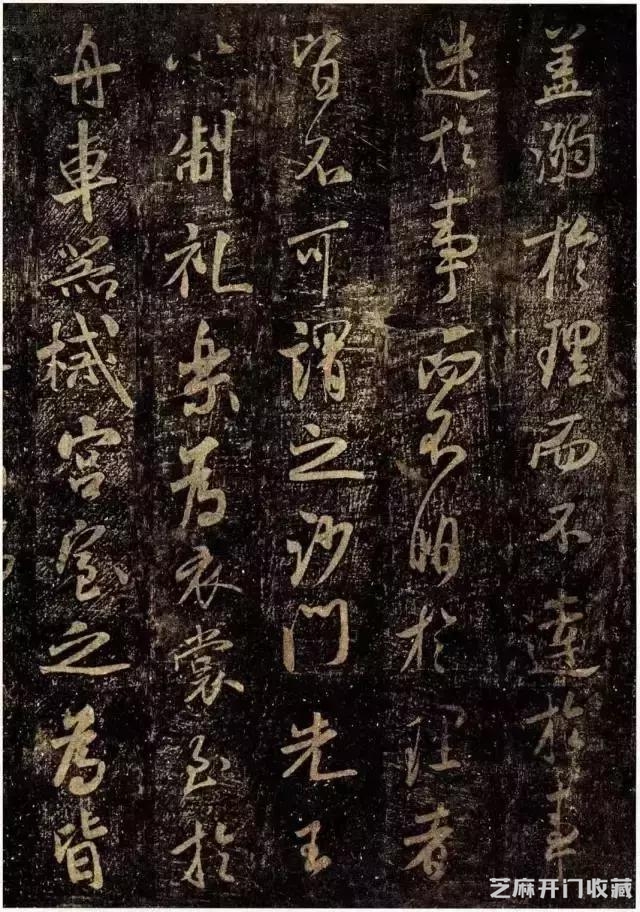 盖溺於理而不達於事
迷於事而不明於理者
皆不可謂之沙門先王
以制礼樂為衣裳至於
舟車器械宮室之為皆
芝麻开门收藏